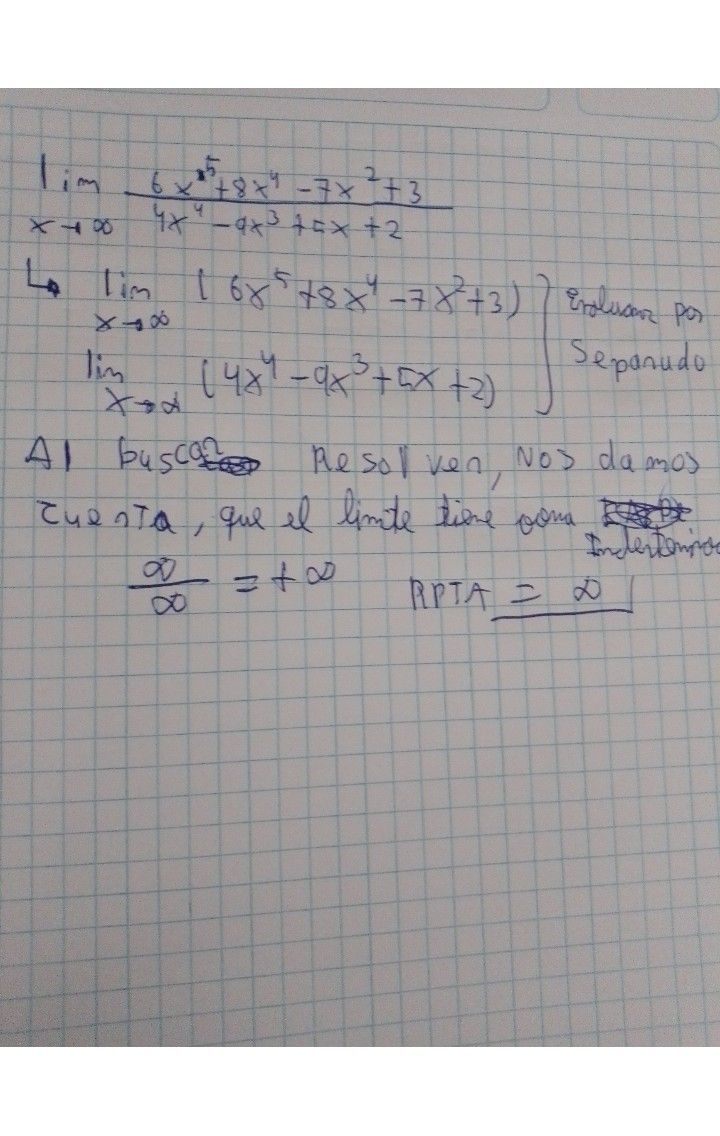 lim 6x⁵+8x⁴-7x²+3
x→∞ 4x⁴-9x³+5x+2
↳ lim (6x⁵+8x⁴-7x²+3)
x→∞
lim (4x⁴-9x³+5x+2)
x→∞
Evaluar por
Separado
Al buscar Resolver, Nos damos
cuenta, que el limite tiene
∞/∞ = +∞
RPTA = ∞